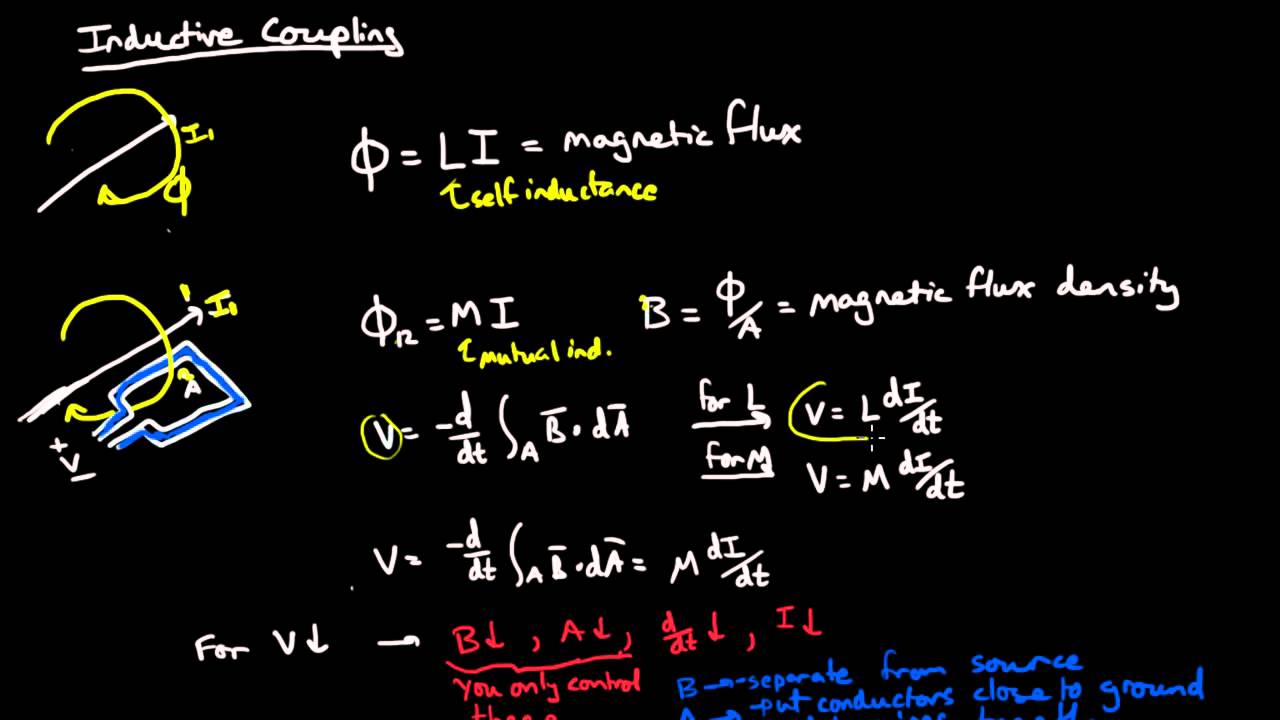 Inductive Coupling
I₁
ϕ
ϕ = LI = magnetic flux
self inductance
I₁
A
+
V
-
ϕ₁₂ = M I
mutual ind.
B = ϕ/A = magnetic flux density
V = -d/dt ∫_A B̅ · dA̅
for L
V = L dI/dt
for M
V = M dI/dt
V = -d/dt ∫_A B̅ · dA̅ = M dI/dt
For V↓ → B↓ , A↓, d/dt ↓ , I↓
you only control
B → -separate from source
-put conductors close to ground
A →